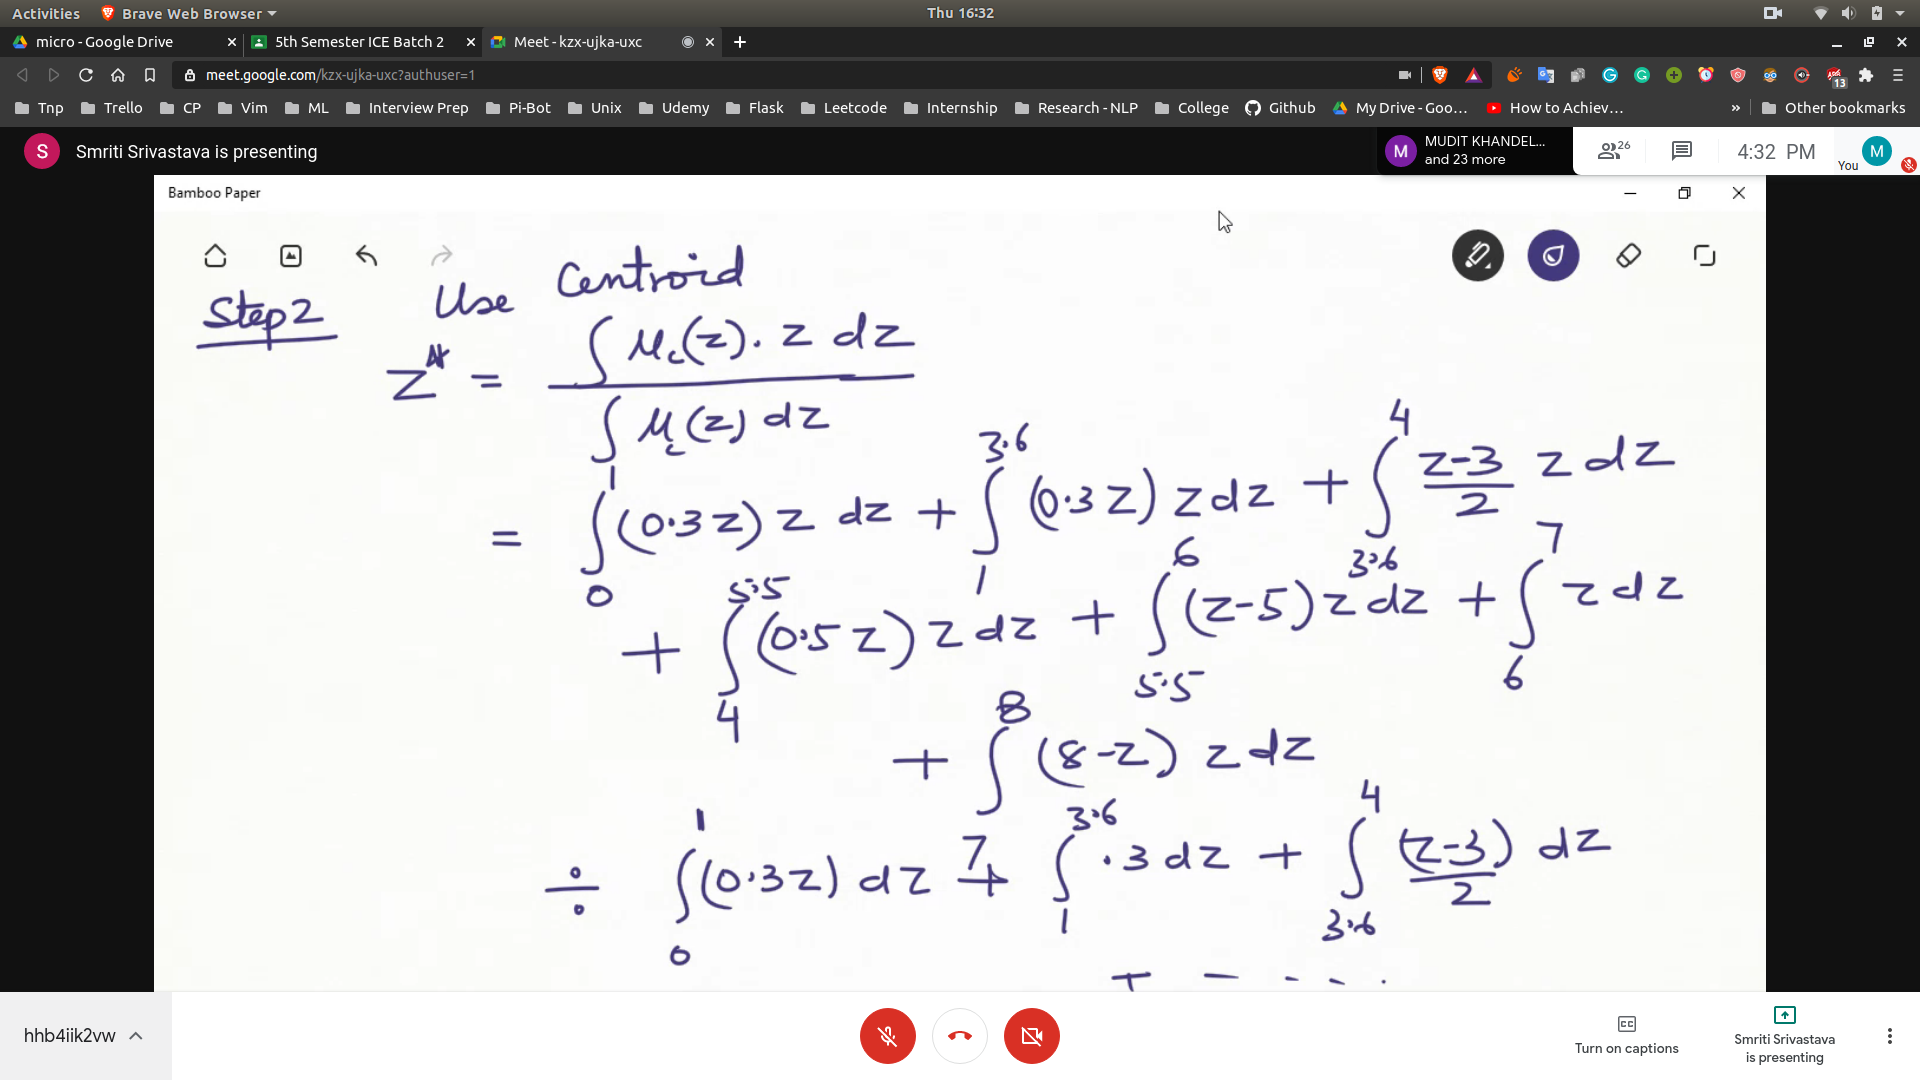 Activities Brave Web Browser Thu 16:32
micro - Google Drive 5th Semester ICE Batch 2 Meet - kzx-ujka-uxc
meet.google.com/kzx-ujka-uxc?authuser=1 13
Tnp Trello CP Vim ML Interview Prep Pi-Bot Unix Udemy Flask Leetcode Internship Research - NLP College Github My Drive - Goo… How to Achiev… » Other bookmarks
S Smriti Srivastava is presenting M MUDIT KHANDEL... and 23 more 26 4:32 PM You M
Bamboo Paper
Step 2 Use Centroid
z* = ∫ μc(z). z dz / ∫ μc(z) dz
= ∫₀¹ (0.3z) z dz + ∫₁^3.6 (0.3z) z dz + ∫_3.6^4 (z-3)/2 z dz
+ ∫₄^5.5 (0.5z) z dz + ∫_5.5^6 (z-5) z dz + ∫₆⁷ z dz
+ ∫₇⁸ (8-z) z dz
÷ ∫₀¹ (0.3z) dz + ∫₁^3.6 .3 dz + ∫_3.6^4 (z-3)/2 dz
+ - - - .
hhb4iik2vw Turn on captions Smriti Srivastava is presenting